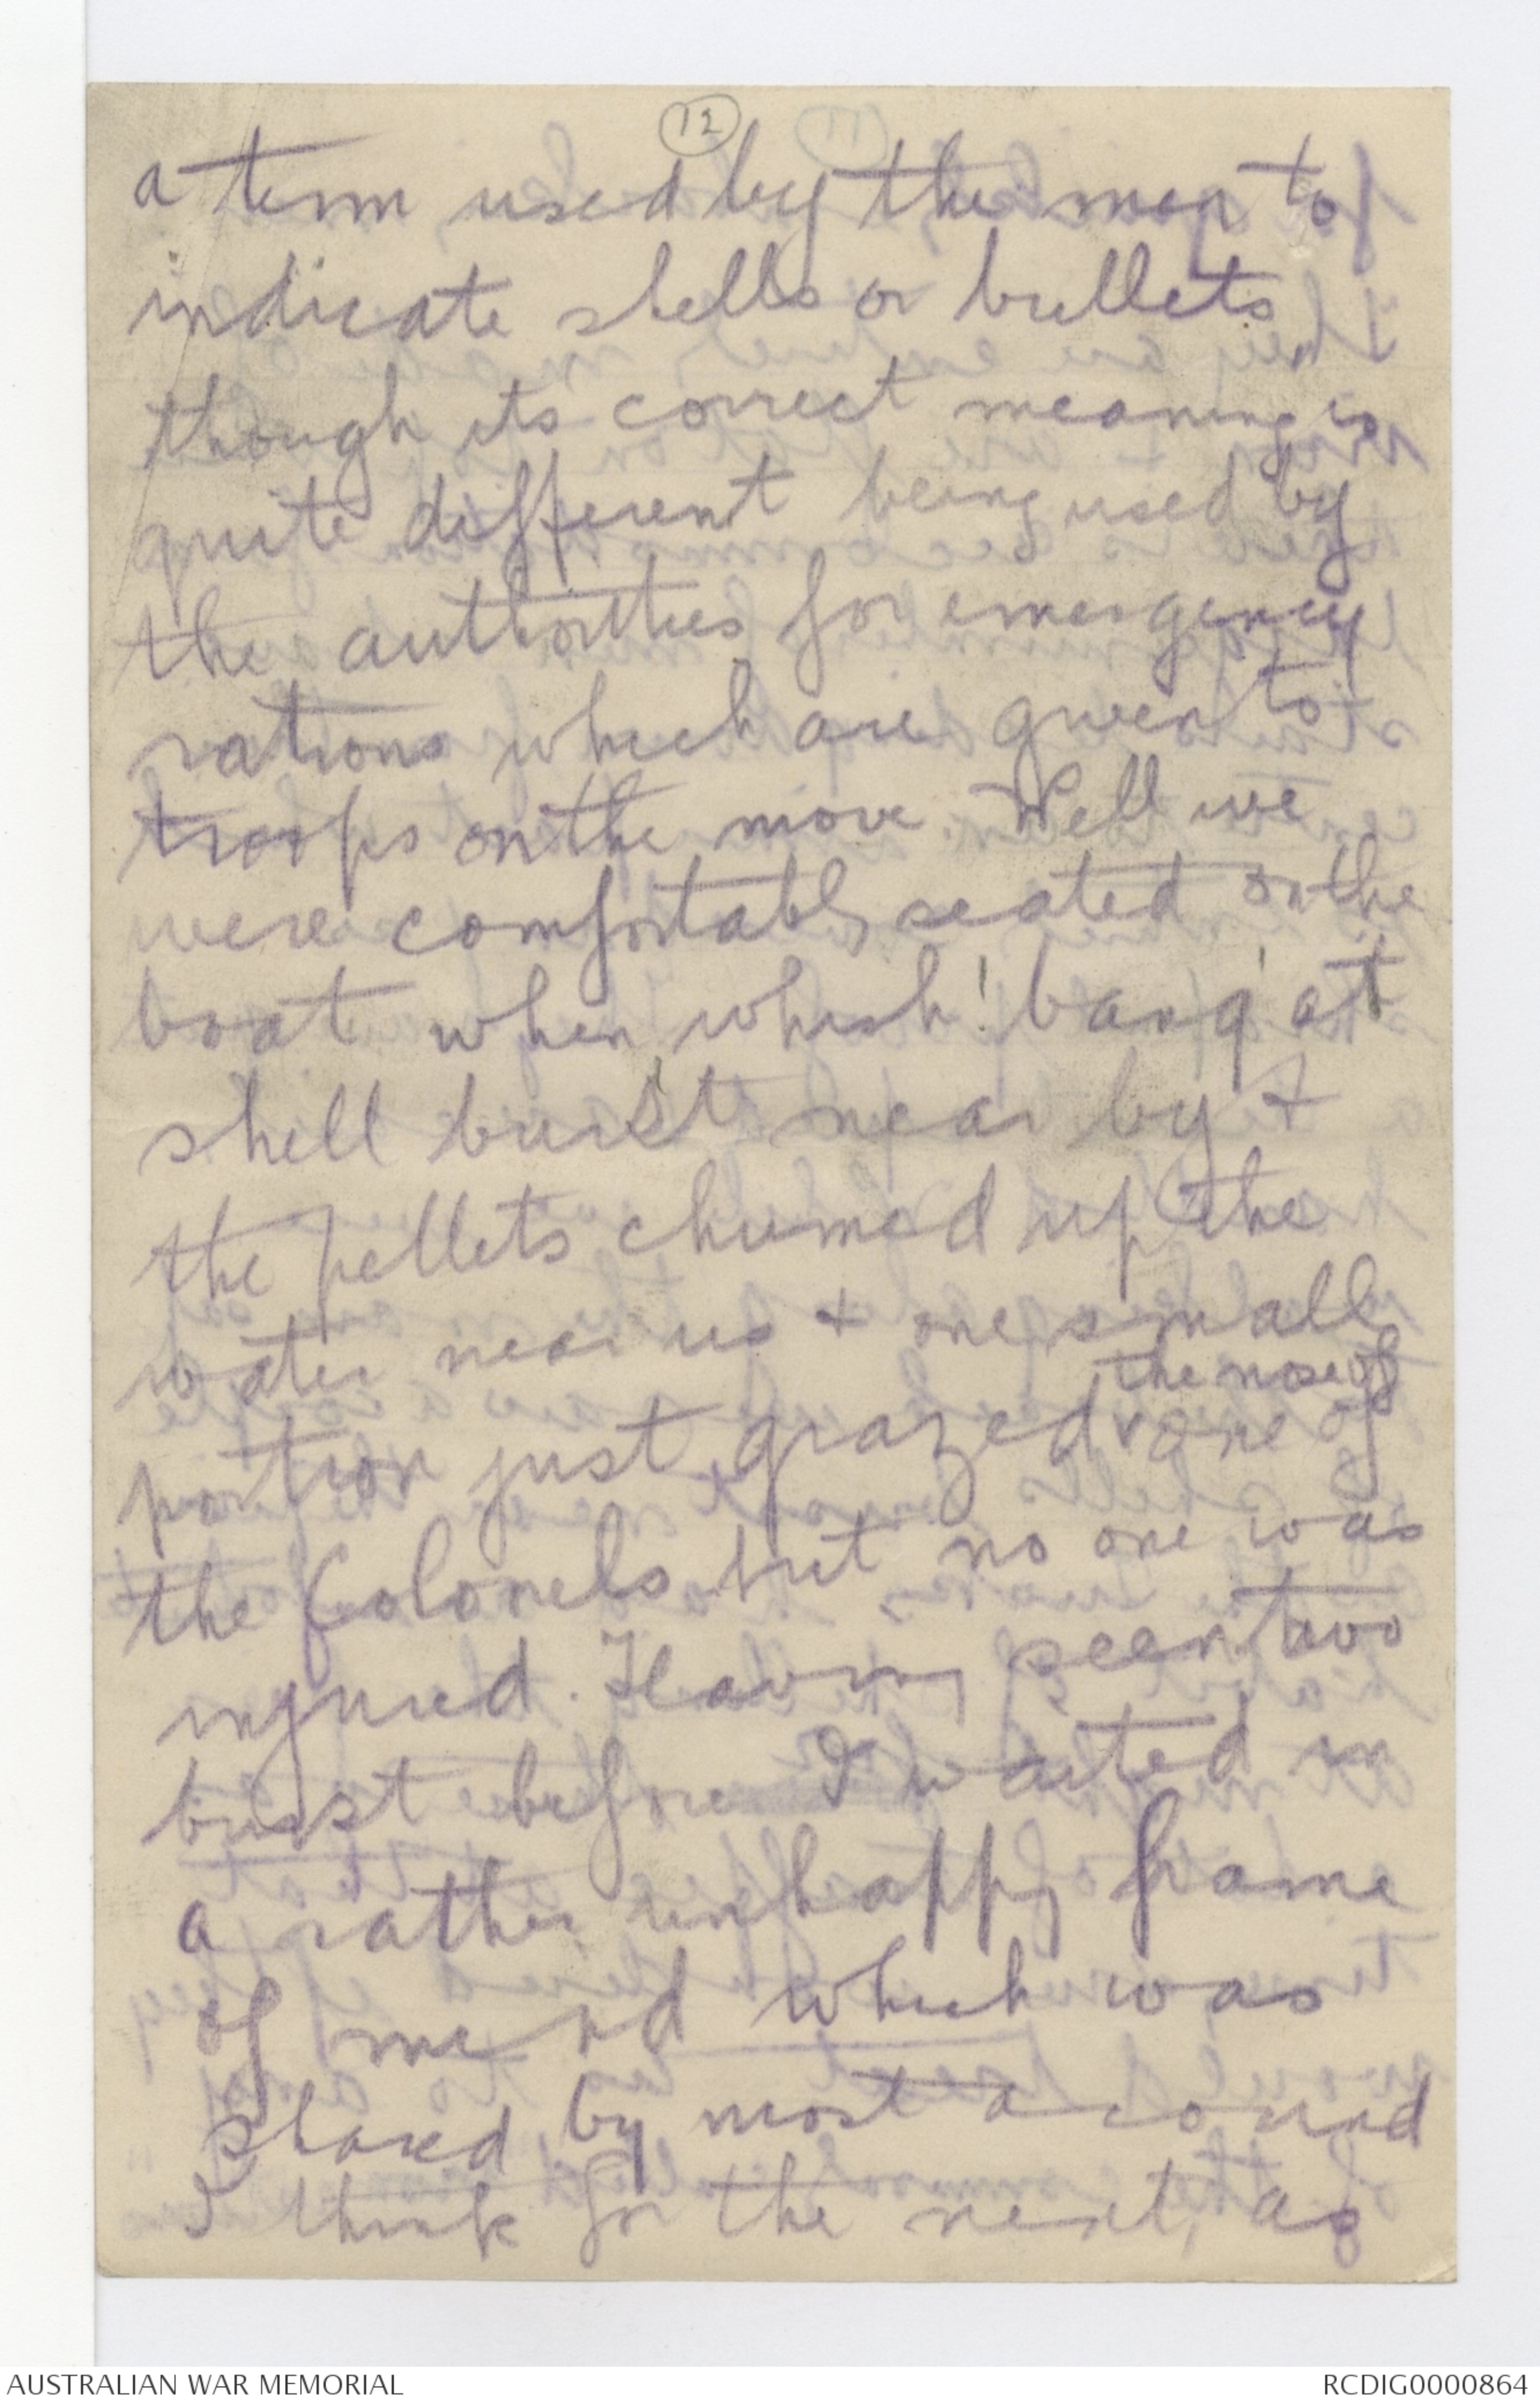 12
a term used by the men to
indicate shells or bullets,
though its correct meaning is
quite different being used by
the authorities for emergency
rations which are given to
troops on the move. Well we
were comfortably seated on the
boat when whish! bang! a
shell burst near by &
the pellets churned up the
water near us & one small
the nose of
portion just grazed one of
the Colonels but no one was
injured. Having seen two
burst before I waited in
a rather unhappy frame
of mind which was
shared by most around
I think for the next, as
AUSTRALIAN WAR MEMORIAL
RCDIG0000864